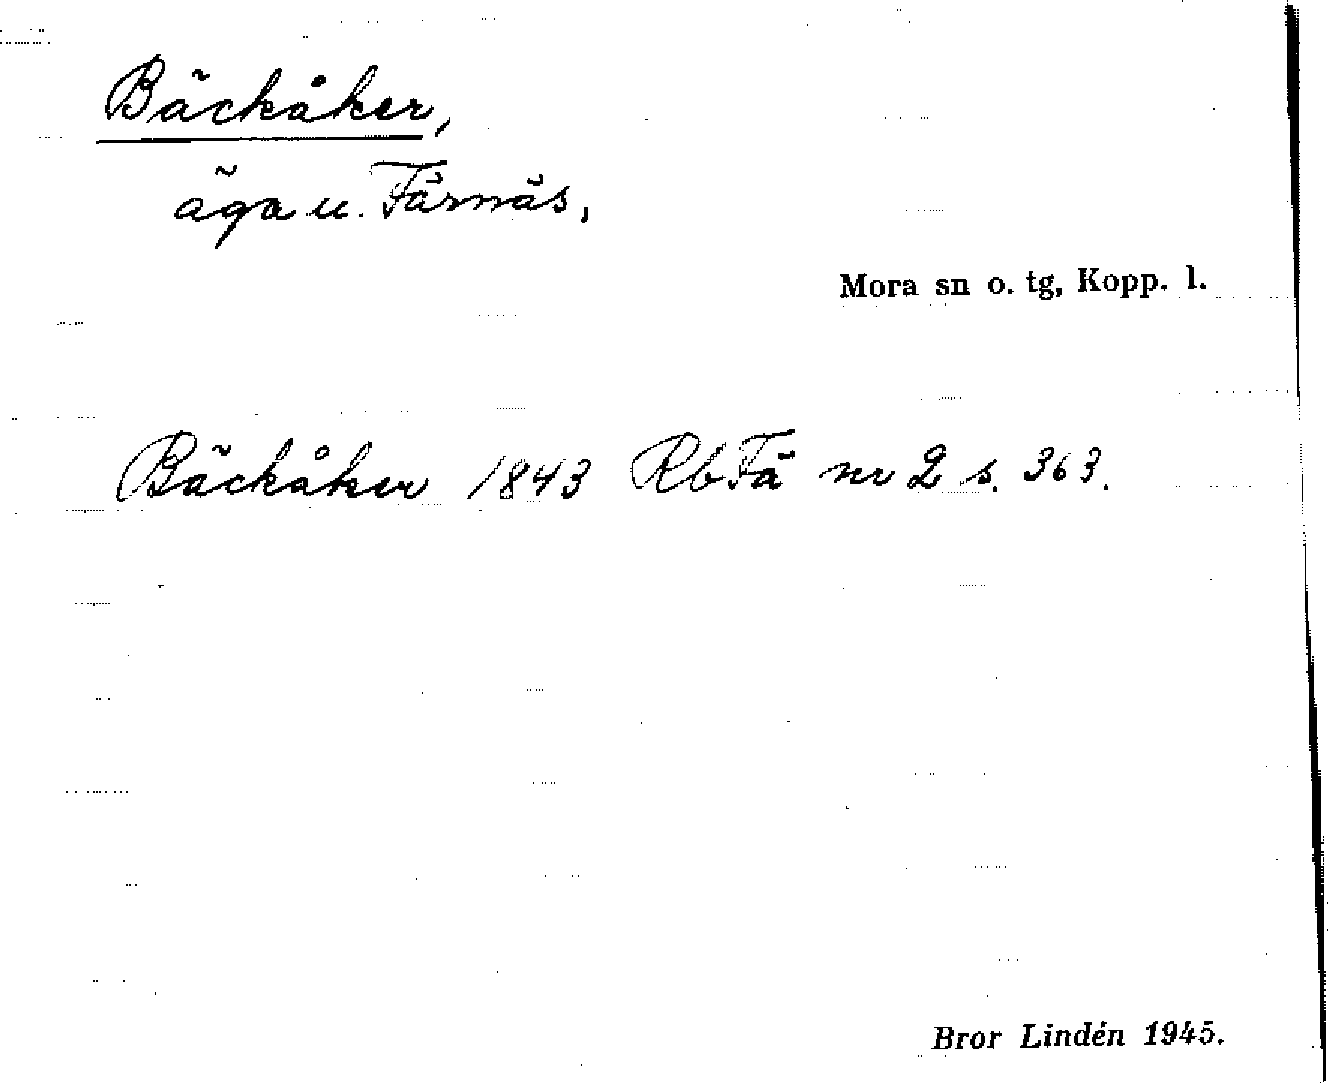 Bäckåker,
äga u. Färnäs,
Mora sn o. tg, Kopp. l.
Bäckåker 1843 RbFä nr 2 s. 363.
Bror Lindén 1945.